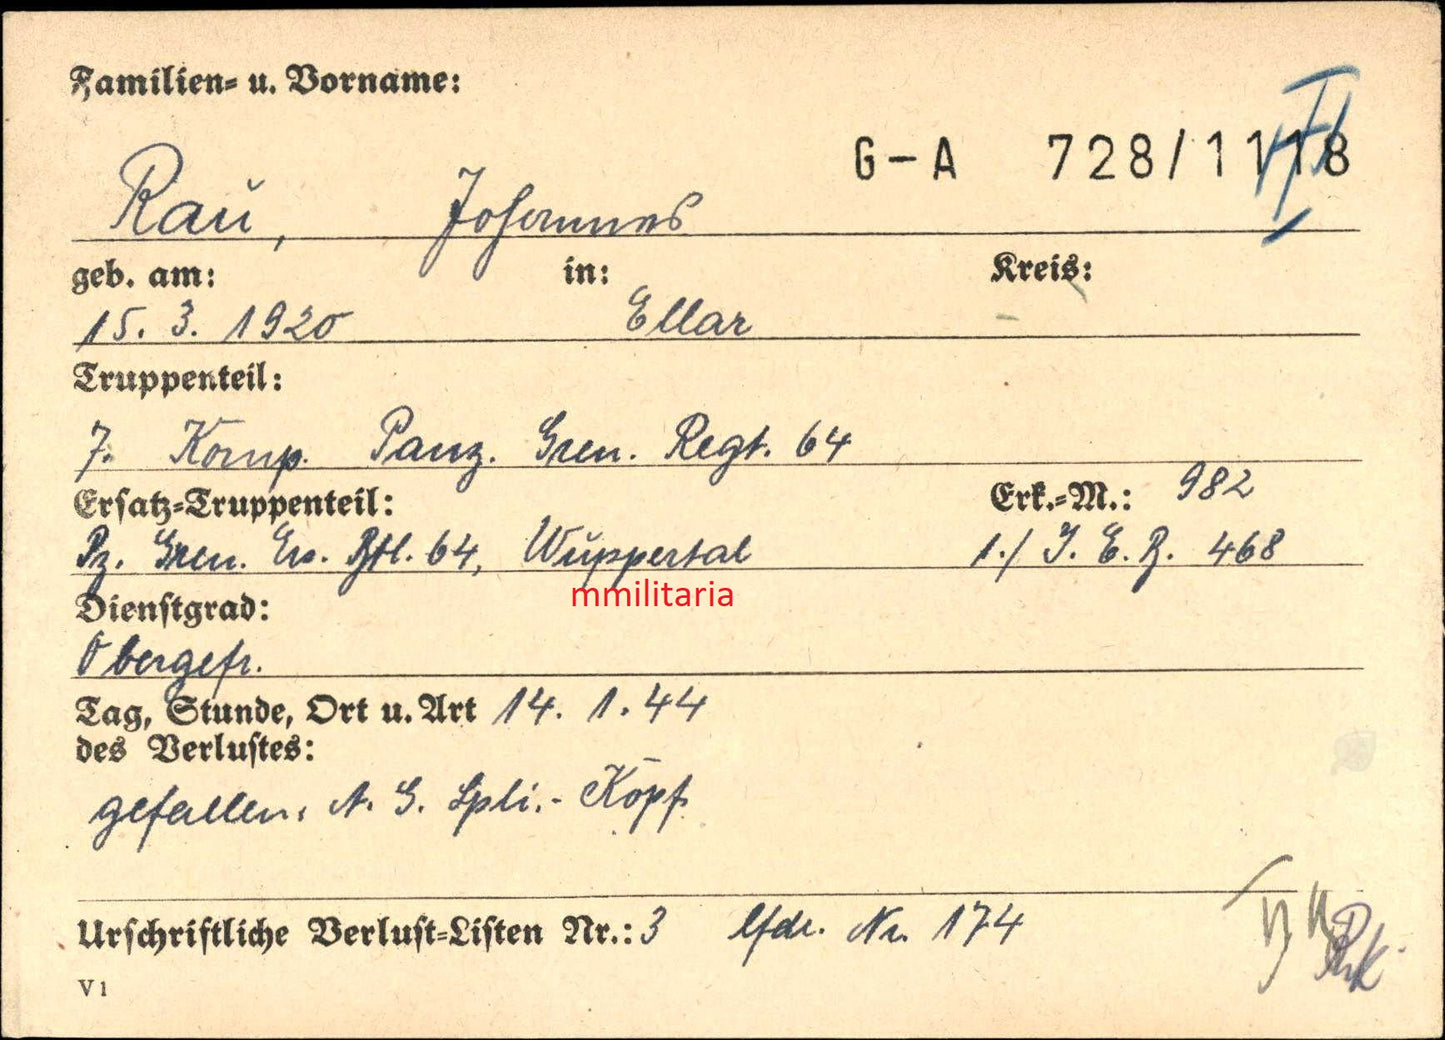 Familien- u. Vorname:
G-A 728/1118
Rau, Johannes
geb. am: in: Kreis:
15. 3. 1920 Ellar -
Truppenteil:
7. Komp. Panz. Gren. Regt. 64
Ersatz-Truppenteil: Erk.-M.: 982
Pz. Gren. Ers. Btl. 64, Wuppertal 1./ I. E. B. 468
mmilitaria
Dienstgrad:
Obergefr.
Tag, Stunde, Ort u. Art 14. 1. 44
des Verlustes:
gefallen, A. G. Spli.- Kopf
Urschriftliche Verlust-Listen Nr.: 3 lfde. Nr. 174
V1